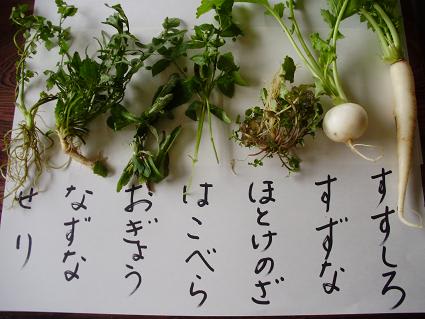 せり
なずな
おぎょう
はこべら
ほとけのざ
すずな
すずしろ